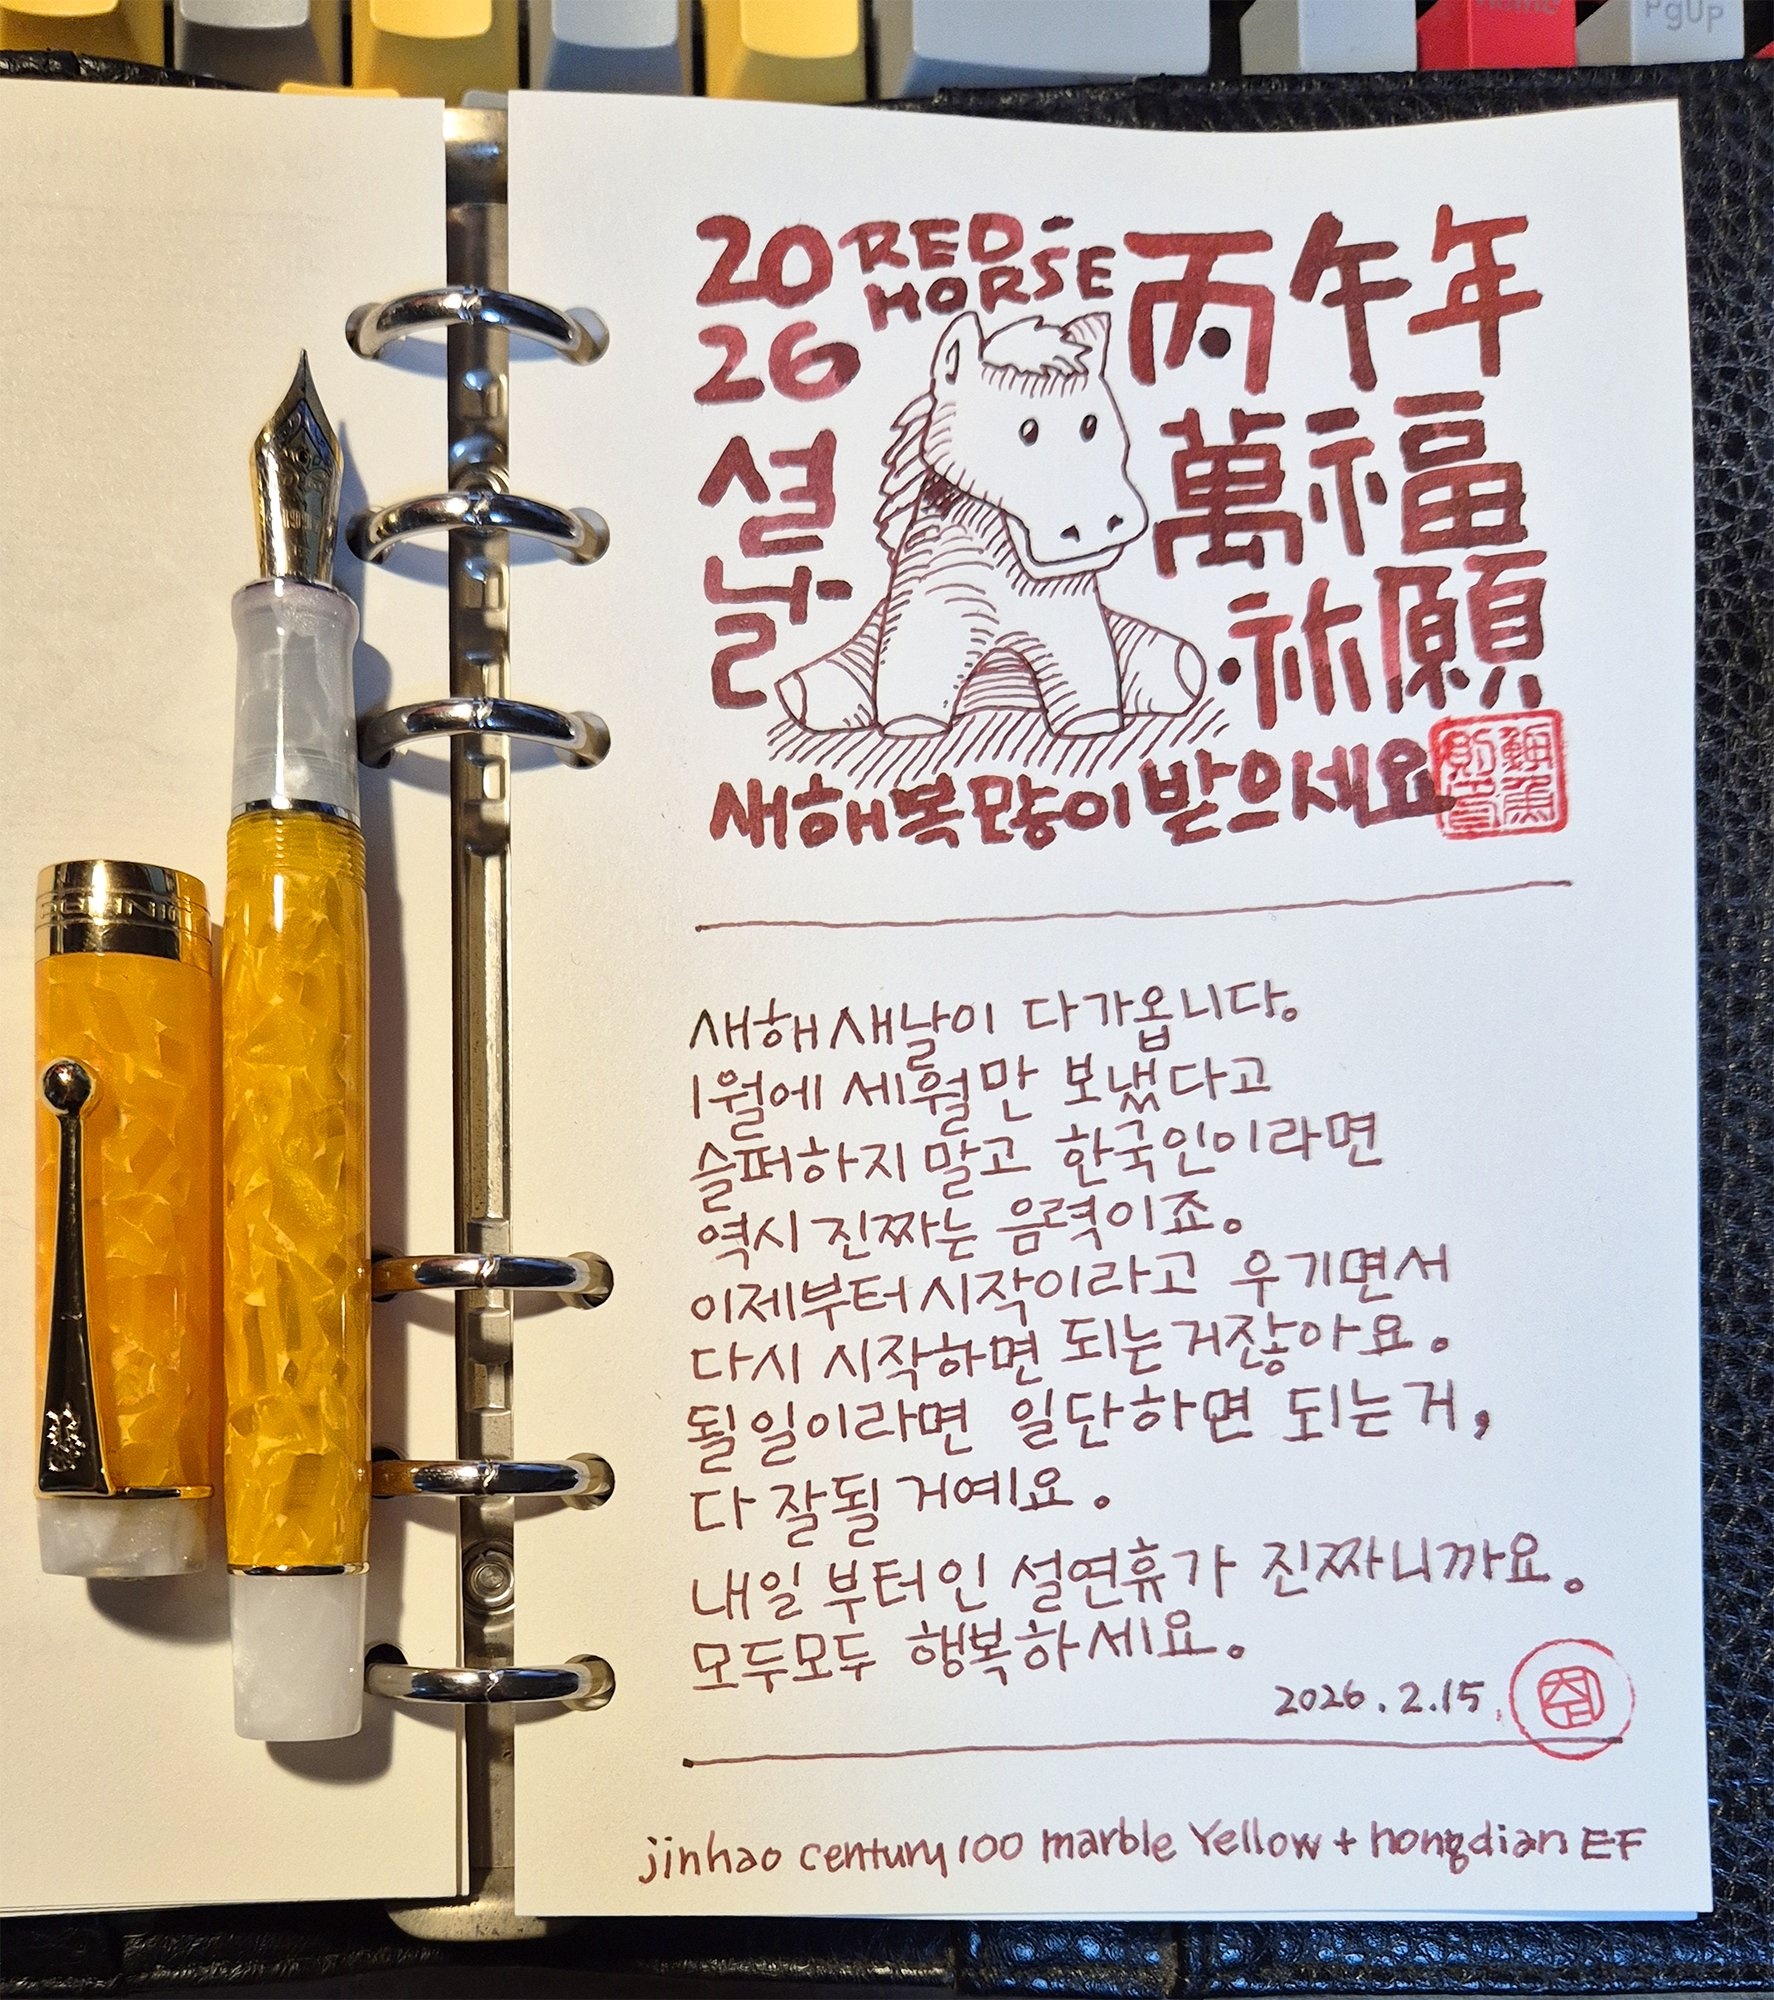 PgUp
20 RED- 丙午年
26 HORSE
설날
萬福
祈願
새해 복 많이 받으세요
새해 새날이 다가옵니다。
1월에 세월만 보냈다고
슬퍼하지 말고 한국인이라면
역시 진짜는 음력이죠。
이제부터 시작이라고 우기면서
다시 시작하면 되는거잖아요。
될일이라면 일단하면 되는거,
다 잘될 거예요.
내일 부터인 설연휴가 진짜니까요。
모두모두 행복하세요。
2026.2.15.
jinhao century 100 marble Yellow + hongdian EF